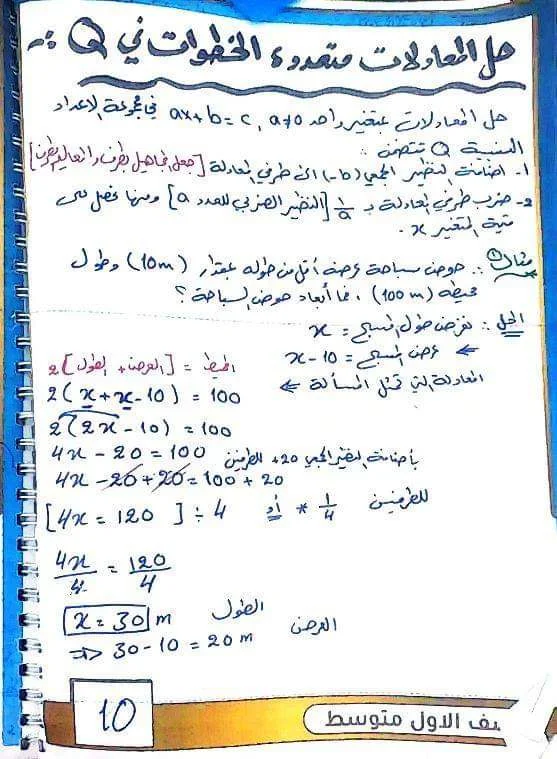 حل المعادلات متعددة الخطوات في Q :-
حل المعادلات بمتغير واحد ax+b=c, a≠0 في مجموعة الاعداد
النسبية Q تتضمن :
1- اضافة النظير الجمعي (-b) الى طرفي المعادلة [جعل المجاهيل بطرف والمعاليم بطرف]
2- ضرب طرفي المعادلة بـ 1/a [النظير الضربي للعدد a] ومنها نحصل على
قيمة المتغير x.
مثال① :. حوض سباحة عرضه أقل من طوله بمقدار (10m) وطول
محيطه (100m) ، فما أبعاد حوض السباحة ؟
الحل :. نفرض طول المسبح = x
← عرض المسبح = x-10
المعادلة التي تمثل المسألة ←
المحيط = [العرض + الطول] 2
2(x+x-10) = 100
2(2x-10) = 100
4x - 20 = 100 بأضافة النظير الجمعي +20 للطرفين
4x - 20 + 20 = 100 + 20
[4x = 120] ÷ 4 أو * 1/4 للطرفين
4x/4 = 120/4
x = 30 m الطول
=> 30-10 = 20 m العرض
10
صف الاول متوسط